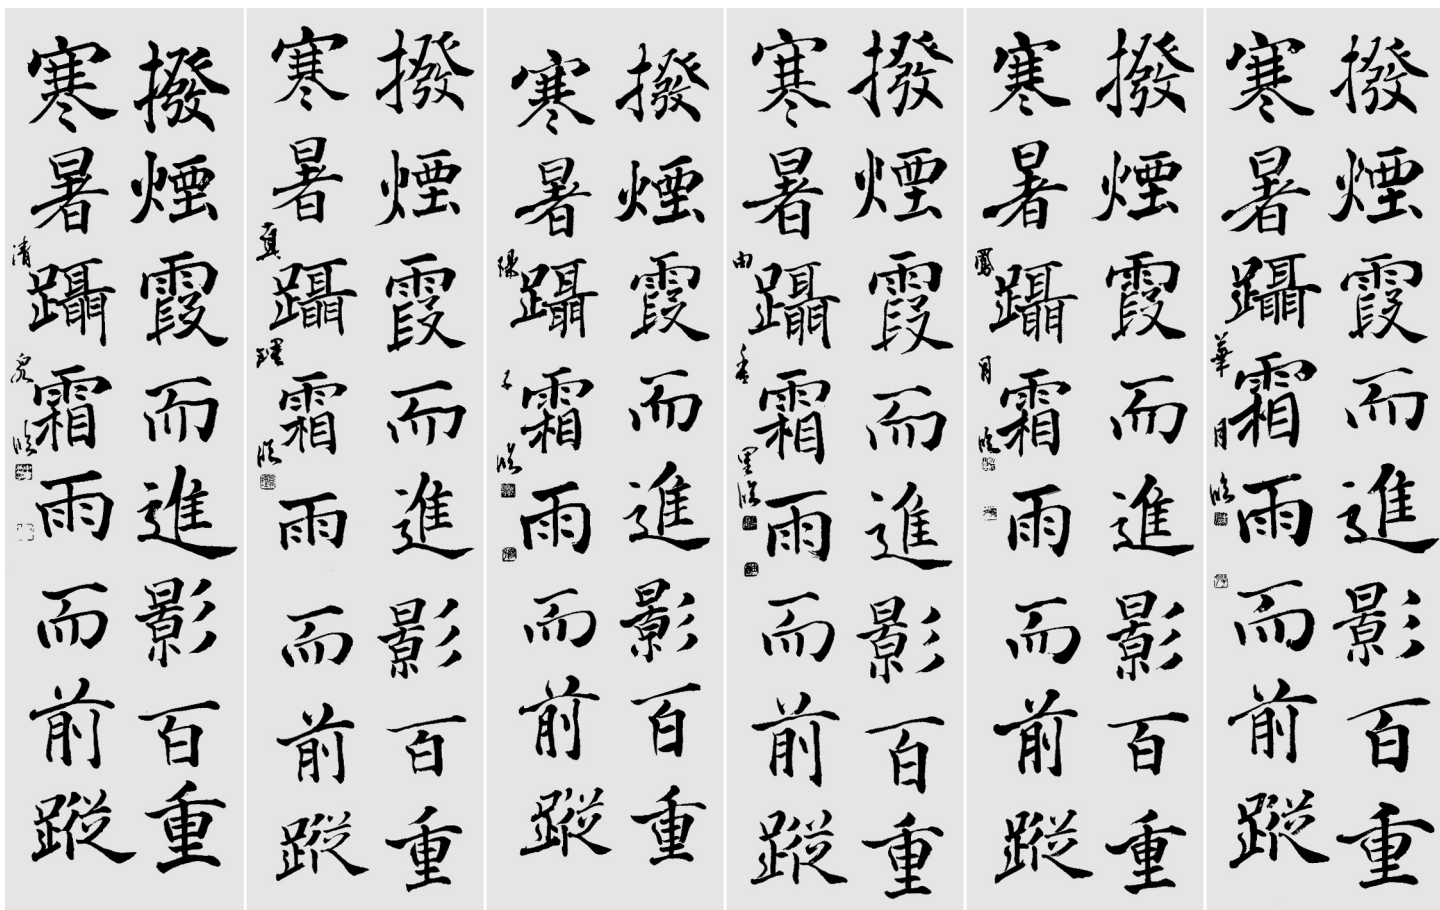 撥煙霞而進影百重
寒暑躡霜雨而前蹤
華月臨
撥煙霞而進影百重
寒暑躡霜雨而前蹤
鳳月臨
撥煙霞而進影百重
寒暑躡霜雨而前蹤
由香里臨
撥煙霞而進影百重
寒暑躡霜雨而前蹤
臨
撥煙霞而進影百重
寒暑躡霜雨而前蹤
真理臨
撥煙霞而進影百重
寒暑躡霜雨而前蹤
清泉臨